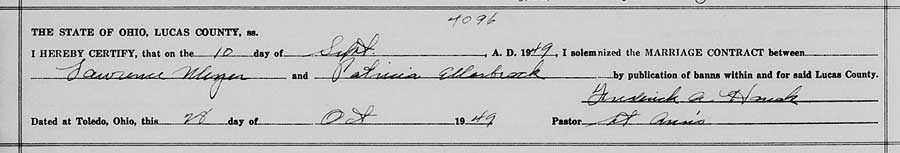 4096
THE STATE OF OHIO, LUCAS COUNTY, ss.
I HEREBY CERTIFY, that on the 10 day of Sept. , A. D. 1949, I solemnized the MARRIAGE CONTRACT between
Lawrence Meyer and Patricia Ellerbrock by publication of banns within and for said Lucas County.
Frederick A. Houck
Dated at Toledo, Ohio, this 28 day of Oct 1949 Pastor St Ann's